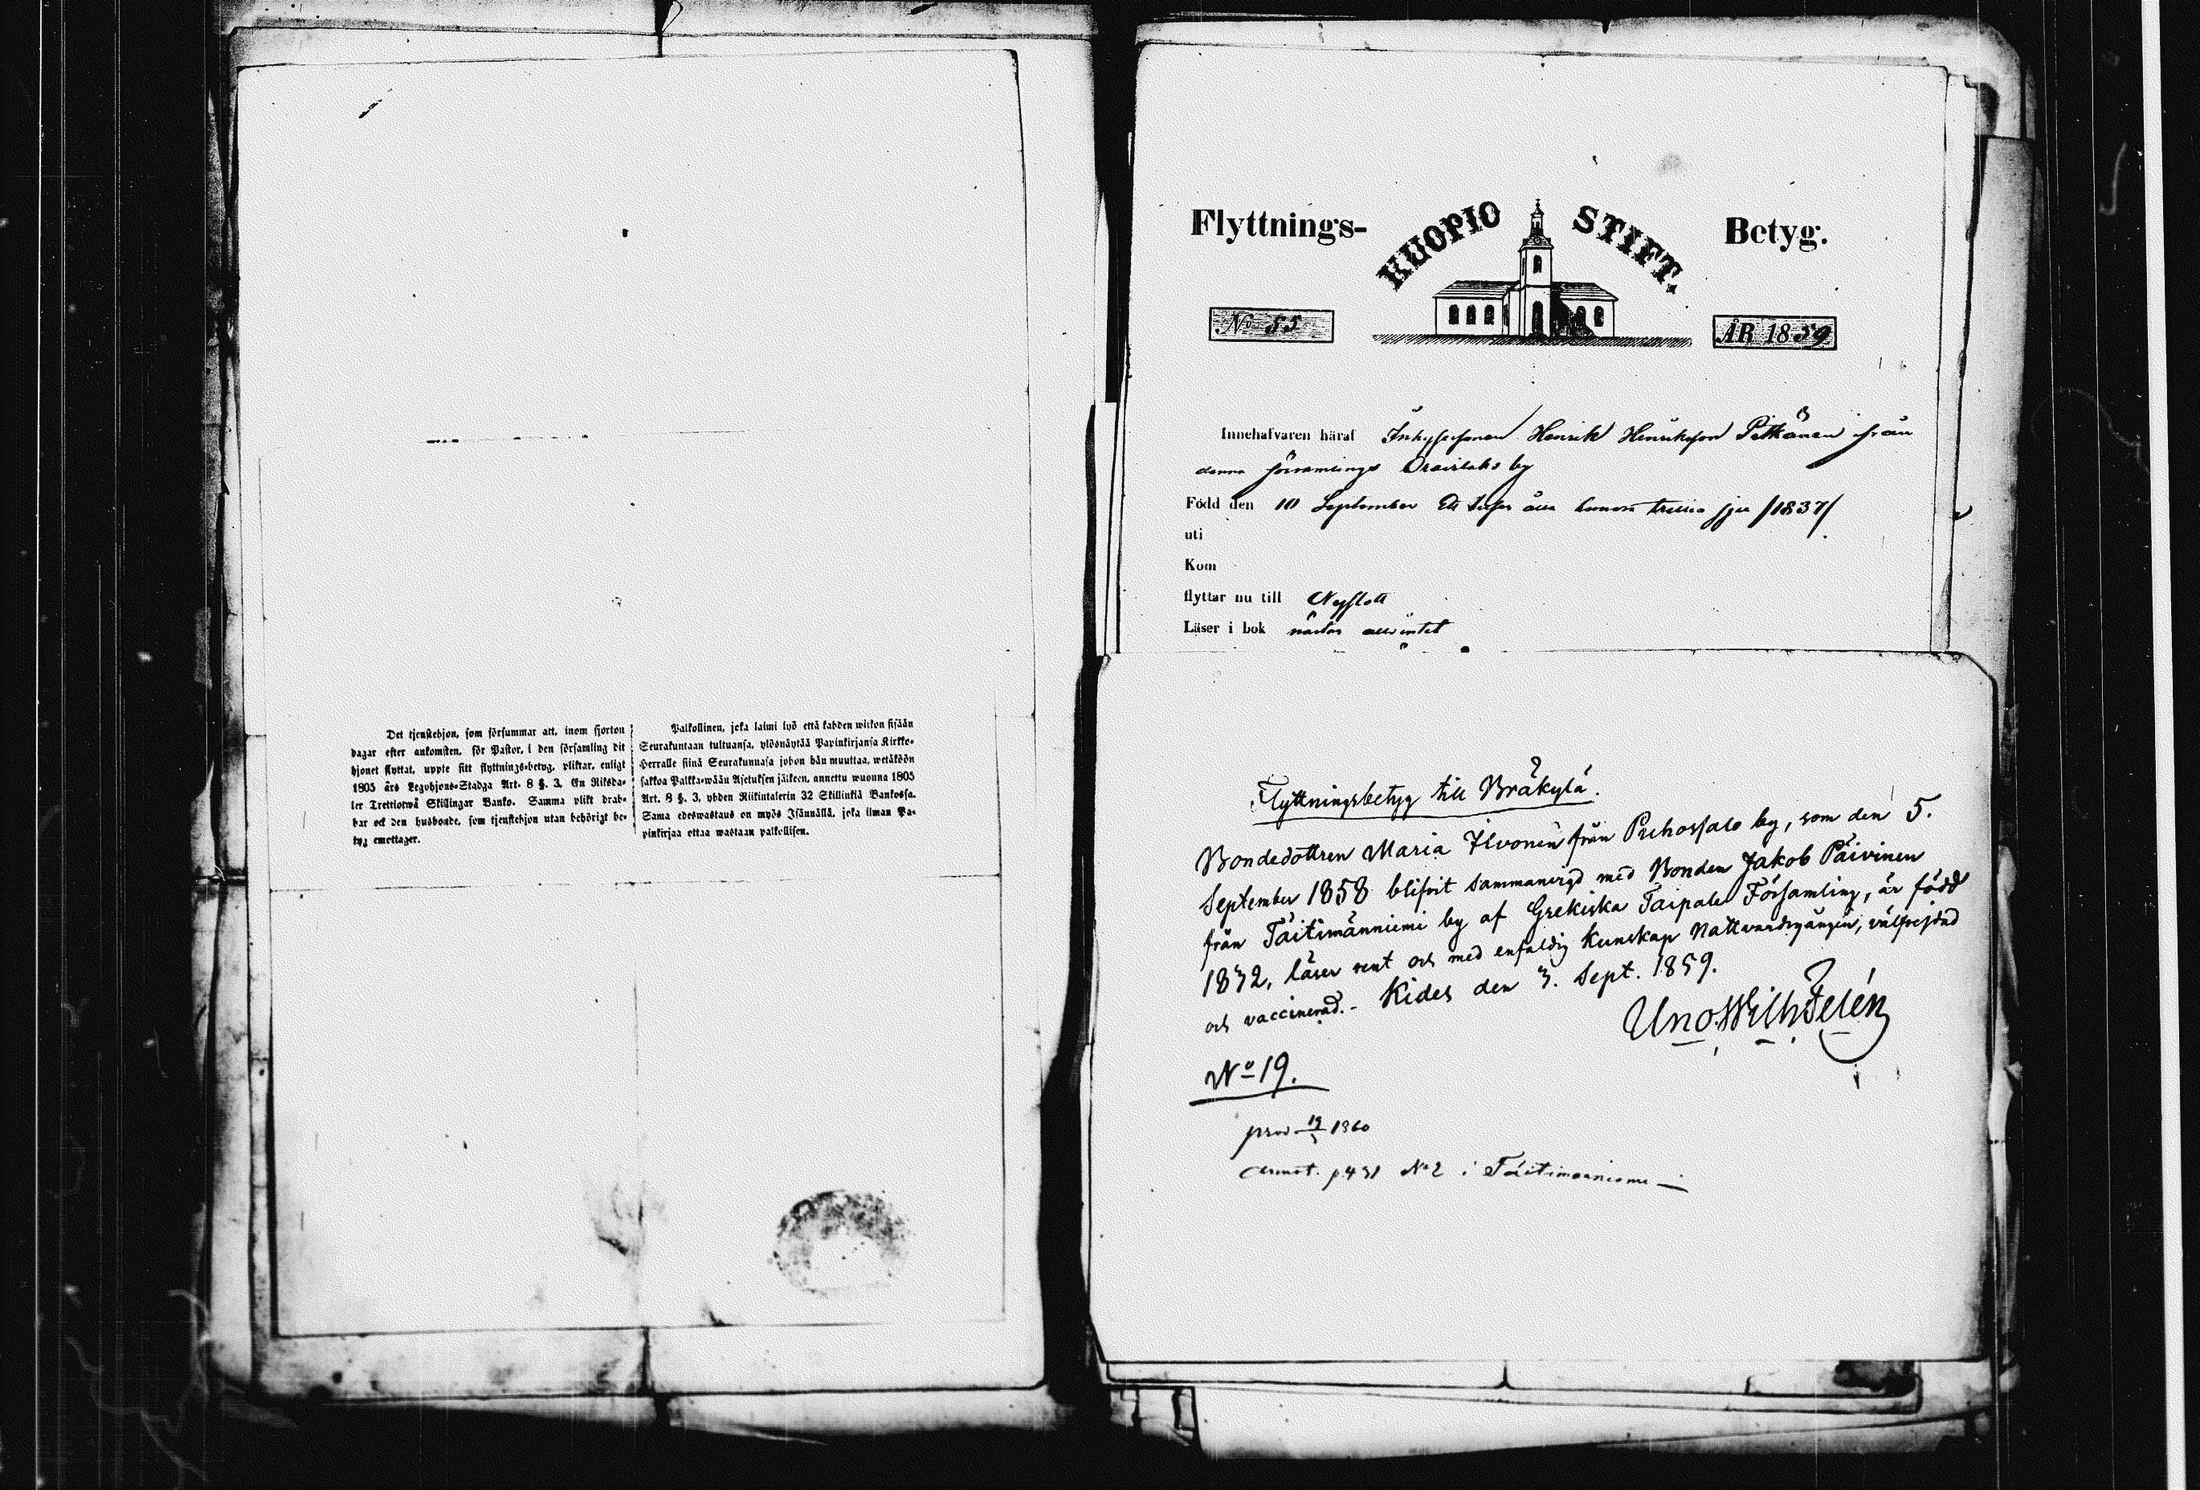 Det tjenstehjon, som försummar att, inom fjorton
dagar efter ankomsten, för Pastor, i den församling dit
hjonet flyttat, uppte sitt flyttnings-betyg, pliktar, enligt
1805 års Legohjons-Stadga Art. 8 §. 3. En Riksda-
ler Trettiotwå Skillingar Banko. Samma plikt drab-
bar ock den husbonde, som tjenstehjon utan behörigt be-
tyg emottager.
Palkollinen, joka laimi lyö että kahden wiikon sisään
Seurakuntaan tultuansa, ylösnäytää Papinkirjansa Kirkko-
Herralle siinä Seurakunnasa johon hän muuttaa, wetäköön
sakkoa Palkka-wään Asetuksen jälkeen, annettu wuonna 1805
Art. 8 §. 3, yhden Riikintalerin 32 Skillinkiä Bankossa.
Sama edeswastaus on myös Isännällä, joka ilman Pa-
pinkirjaa ottaa wastaan palkollisen.
Flyttnings- KUOPIO STIFT. Betyg.
No 55 ÅR 1859
Innehafvaren häraf Henrik Henriksson Pitkänen ifrån
denna församlings by
Född den 10 September Ett tusen åtta hundra trettio sju /1837/.
uti
Kom
flyttar nu till Nyslott
Läser i bok nästan
Flyttningsbetyg till Bräkylä.
Bondedottren Maria Ilvonen från Puhossalo by, som den 5.
September 1858 blifvit sammanvigd med Bonden Jakob Päivinen
från Täitimänniemi by af Grekiska Taipale Församling, är född
1832, läser rent och med enfaldig kunskap Nattvardsgången, välfrejdad
och vaccinerad. - Kides den 3. Sept. 1859.
Uno Wilh Telén
No 19.
prod 19/3 1860
annot. p 431 No 2 i Täitimänniemi